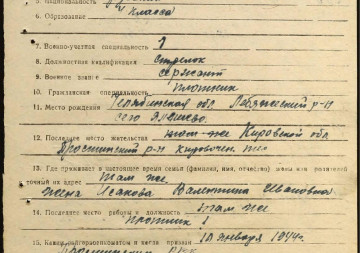 5. Национальность
6. Образование 4 класса
7. Военно-учетная специальность 1
8. Должностная квалификация стрелок
9. Военное звание сержант
10. Гражданская специальность плотник
11. Место рождения Челябинская обл. Лебяжевский р-н
село
12. Последнее место жительства Кировской обл.
Просницкий р-н
13. Где проживает в настоящее время семья (фамилия, имя, отчество) жены или
точный их адрес Там же
жена Исакова Валентина Ивановна
14. Последнее место работы и должность там же
плотник
15. Каким райгорвоенкоматом и когда призван 10 января 1944г.
Просницким РВК